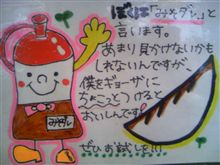 ぼくは「みそダレ」と
言います。
あまり見かけないかも
しれないんですが、
僕をギョーザに
ちょこっとつけると
おいしんです。
ぜひお試しを!!
みそダレ